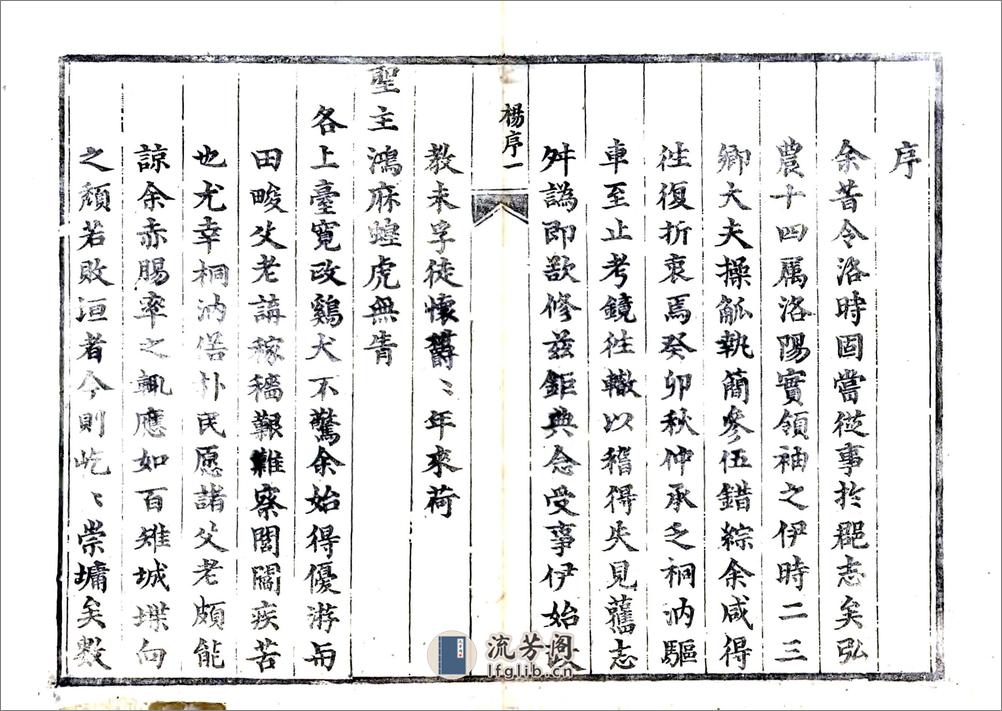 序
余昔令洛時固嘗從事扵郡志矣弘
農十四属洛陽實領袖之伊時二三
卿大夫操觚執簡參伍錯綜余咸得
徃復折衷焉癸卯秋仲承乏桐汭驅
車至止考鏡徃轍以稽得失見舊志
舛譌即欲修兹鉅典念受事伊始
楊序一
教未孚徒懷欝〻年來荷
聖主鴻庥蝗虎無眚
各上臺寬政鷄犬不驚余始得優游而
田畯父老講稼穡艱難察閭閻疾苦
也尤幸桐汭俗朴民愿諸父老頗能
諒余赤賜率之輒應如百雉城堞向
之頹若敗洹者今則屹〻崇墉矣數
流芳阁
lfglib.cn